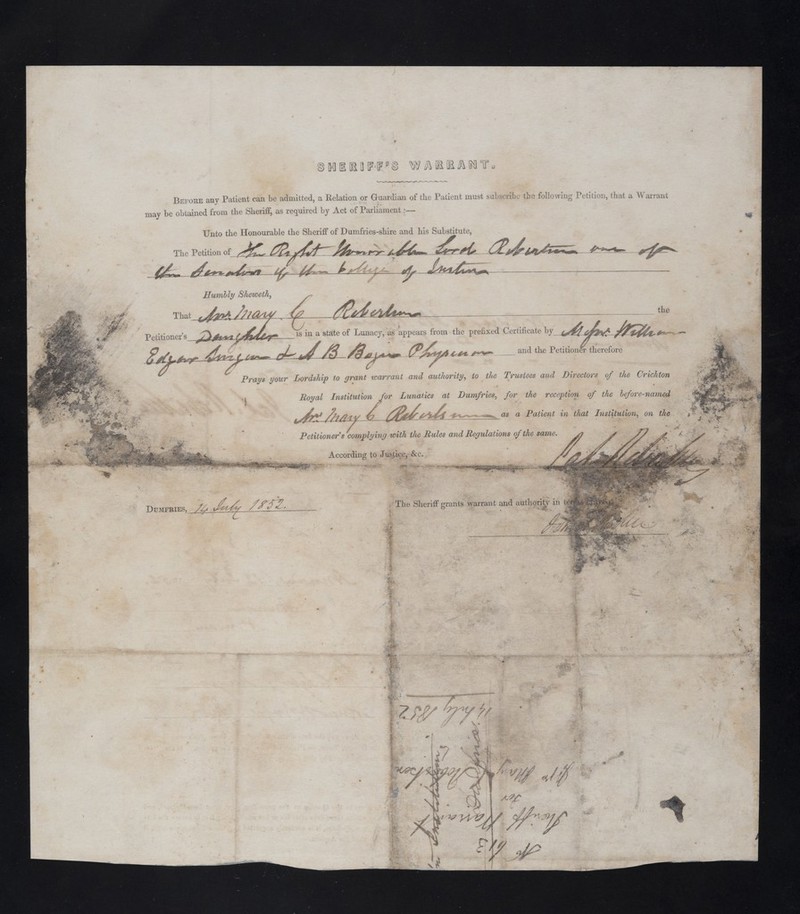 SHERIFF'S WARRANT.
BEFORE any Patient can be admitted, a Relation or Guardian of the Patient must subscribe the following Petition, that a Warrant
may be obtained from the Sheriff, as required by Act of Parliament:—
Unto the Honourable the Sheriff of Dumfries-shire and his Substitute,
The Petition of The Right Honorable Lord Robertson one of
the Senators of the College of Justice
Humbly Sheweth,
That Mrs Mary C Robertson the
Petitioner's Daughter is in a state of Lunacy, as appears from the prefixed Certificate by Messrs William
Edgar Surgeon & A B Physician and the Petitioner therefore
Prays your Lordship to grant warrant and authority, to the Trustees and Directors of the Crichton
Royal Institution for Lunatics at Dumfries, for the reception of the before-named
Mrs Mary C Robertson as a Patient in that Institution, on the
Petitioner's complying with the Rules and Regulations of the same.
According to Justice, &c.
DUMFRIES, 14 July 1852. The Sheriff grants warrant and authority in
No 613
Sheriff Warrant
for
Mrs Mary C Robertson
14 July 1852